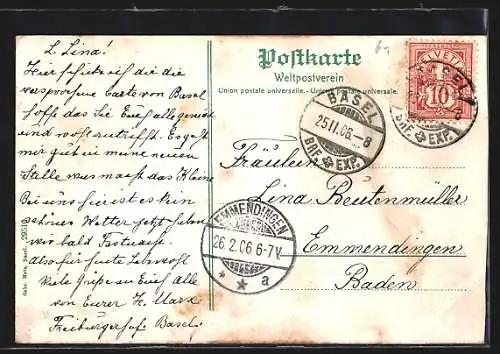 L. Lina!
Hier schicke ich dir die
versprochene Carte von Basel
hoffe das Sie Euch alle gesund
und wohl antrifft. Es geht
mir gut in meine neuen
Stelle was macht das Kleine
Bei uns hier ist es kein
schönes Wetter jetzt haben
wir bald Fastnacht.
also für heute Lebwohl
viele Grüße an Euch alle
von Eurer H. Marx
Freiburgerhof. Basel.
Postkarte
Weltpostverein
Union postale universelle. - Unione postale universale.
HELVETIA
10
BASEL
25 II. 06 - 8
BRF. EXP.
Fräulein
Lina Beutenmüller
Emmendingen
Baden
EMMENDINGEN
26. 2. 06. 6-7 V.
* * a
Gebr. Metz, Basel.